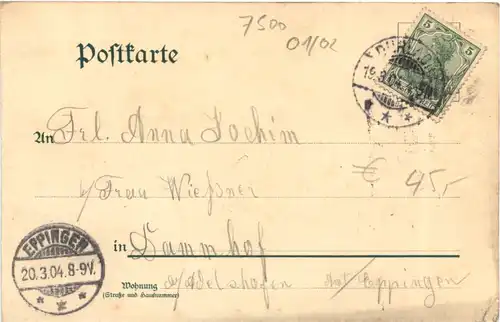 7500
01/02
Postkarte
5
19.3.04
An Frl. Anna Jochim
b/ Frau Wießner
€ 45,-
in Dammhof
EPPINGEN
20.3.04.8-9V.
Wohnung
(Straße und Hausnummer)
b/ Adelshofen Amt Eppingen